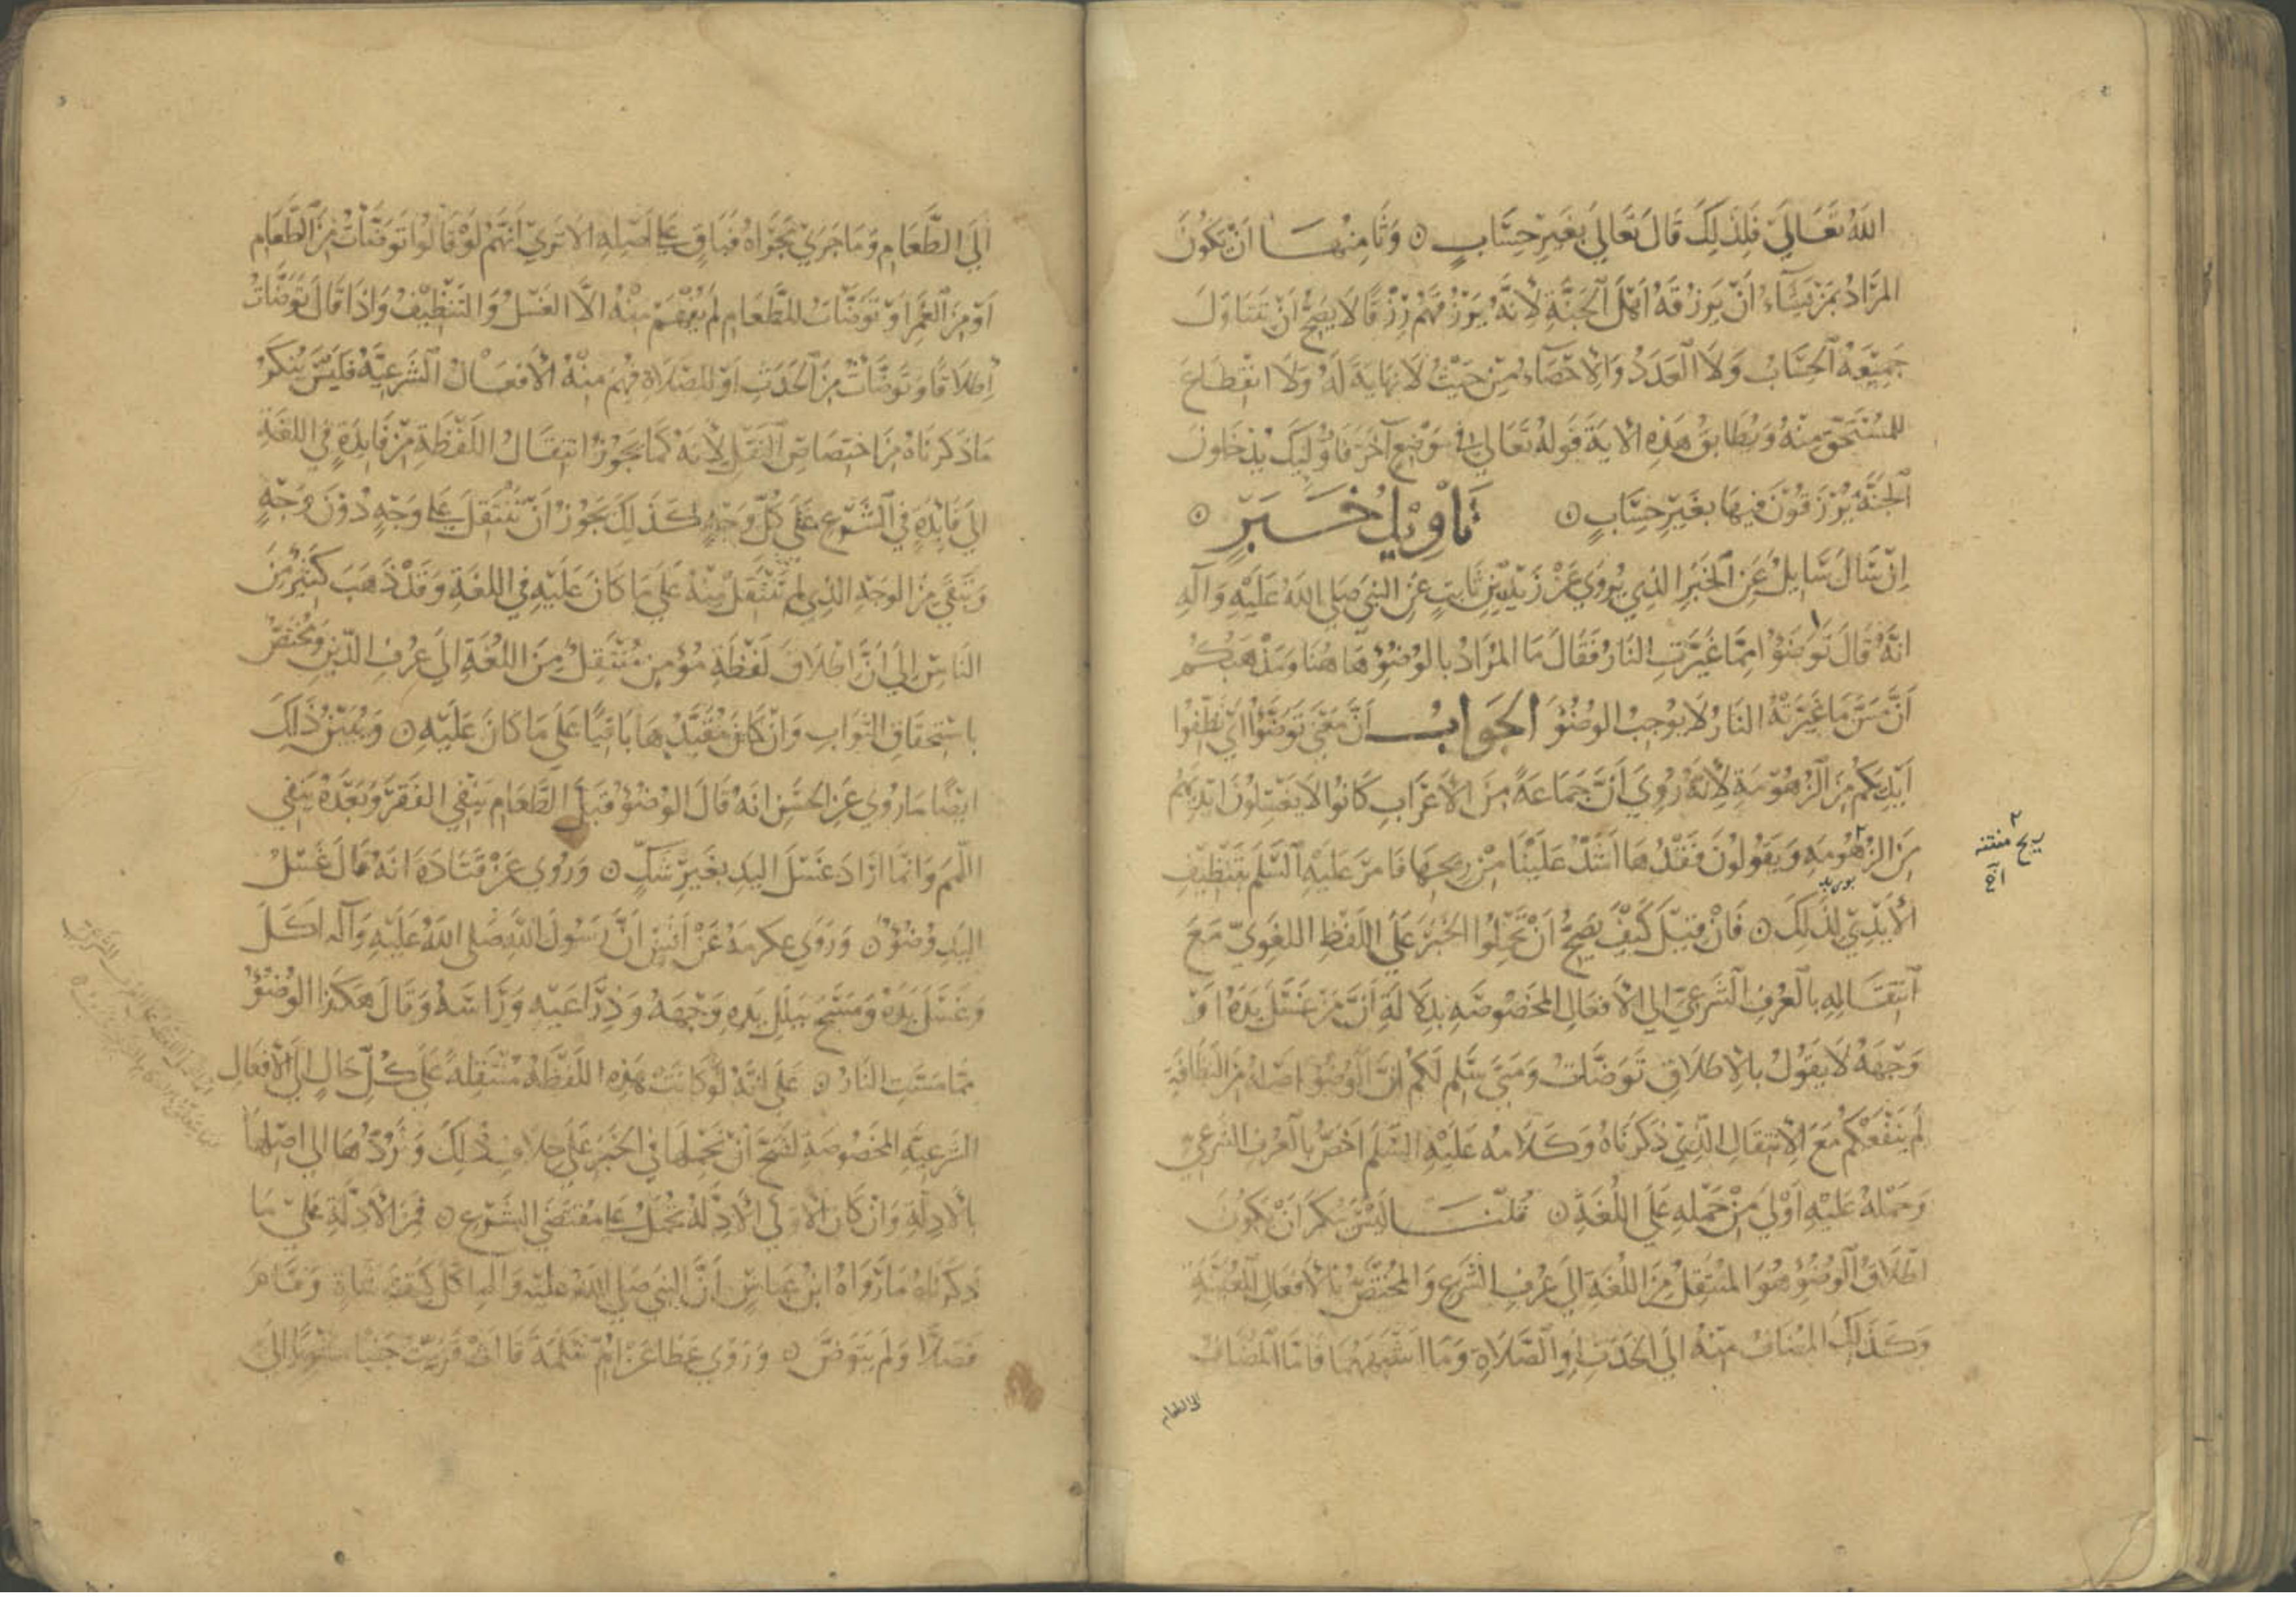 الله تعالى فلذلك قال تعالى بغير حساب ۞ وثامنها ان يكون
المراد بمن يشاء ان يرزقه اهل الجنة لانه يرزقهم رزقا لا يصح ان يتناول
جميعه الحساب ولا العدد والاحصاء من حيث لا نهاية له ولا انقطاع
للمستحق منه ويطابق هذه الاية قوله تعالى في موضع آخر فاوليك يدخلون
الجنة يرزقون فيها بغير حساب ۞ تأويل خبر ۞
ان سال سايل عن الخبر الذي يروي عن زيد بن ثابت عن النبي صلى الله عليه وآله
انه قال توضؤا مما غيرت النار فقال ما المراد بالوضوء هاهنا ومذهبكم
أن مس ما غيرته النار لا يوجب الوضوء الجواب أن معنى توضؤا اي نظفوا
أيديكم من الزهومة لانه روي أن جماعة من الاعراب كانوا لا يغسلون ايديهم
من الزهومه ويقولون فقدها اشد علينا من ريحها فامر عليه السلم بتنظيف
ريح منتنه
الايدي لذلك ۞ فان قيل كيف يصح أن تحملوا الخبر على اللفظ اللغوي مع
انتقاله بالعرف الشرعي الى الافعال المخصوصه بدلالة أن من غسل يده او
وجهه لا يقول بالاطلاق توضات ومتى سلم لكم ان الوضوء اصله من النظافة
لم ينفعكم مع الانتقال الذي ذكرناه وكلامه عليه السلم اخص بالعرف الشرعي
وحمله عليه اولى من حمله على اللغة ۞ قلنا ليس ننكر ان يكون
اطلاق الوضوء هو المنتقل من اللغة الى عرف الشرع والمختص بالافعال المعينة
وكذلك المضاف منه الى الحدث او الصلاة وما اشبههما فاما المضاف
الى الطعام
الى الطعام وما جرى مجراه فباق على اصله الا ترى انهم لو قالوا توضات من الطعام
او من الغمر او توضات للطعام لم يفهم منه الا الغسل والتنظيف واذا قال توضات
اطلاقا او توضات من الحدث او للصلاة فهم منه الافعال الشرعية فليس ينكر
ما ذكرناه من اختصاص النقل لانه كما يجوز انتقال اللفظة من فايدة في اللغة
الى فايدة في الشرع على كل وجه كذلك يجوز ان تنتقل على وجه دون وجه
وتبقى من الوجه الذي لم تنتقل منه على ما كان عليه في اللغة وقد ذهب كثير من
الناس إلى أن اطلاق لفظة مؤمن منتقل من اللغة الى عرف الدين ومختص
باستحقاق الثواب وان كان مقيدها باقيا على ما كان عليه ۞ ويبين ذلك
ايضا ما روي عن الحسن انه قال الوضوء قبل الطعام ينفي الفقر وبعده ينفي
اللمم وانما اراد غسل اليد بغير شك ۞ وروي عن قتادة انه قال غسل
اليد وضوء ۞ وروى عكرمة عن أنس أن رسول الله صلى الله عليه وآله اكل
وغسل يده ومسح ببلل يده وجهه وذراعيه وراسه وقال هكذا الوضوء
مما مست النار ۞ على انه لو كانت هذه اللفظة منتقلة على كل حال الى الافعال
الشرعية المخصوصة لصح أن نحملها في الخبر على خلاف ذلك ونردها الى اصلها
بالادلة وان كان الاولى لولا الادلة تحمل على مقتضى الشرع ۞ فمن الادلة على ما
ذكرناه ما رواه ابن عباس أن النبي صلى الله عليه وآله اكل كتف شاة وقام
فصلا ولم يتوض ۞ وروى عطا عن ام سلمة قالت قربت جنبا مشويا الى